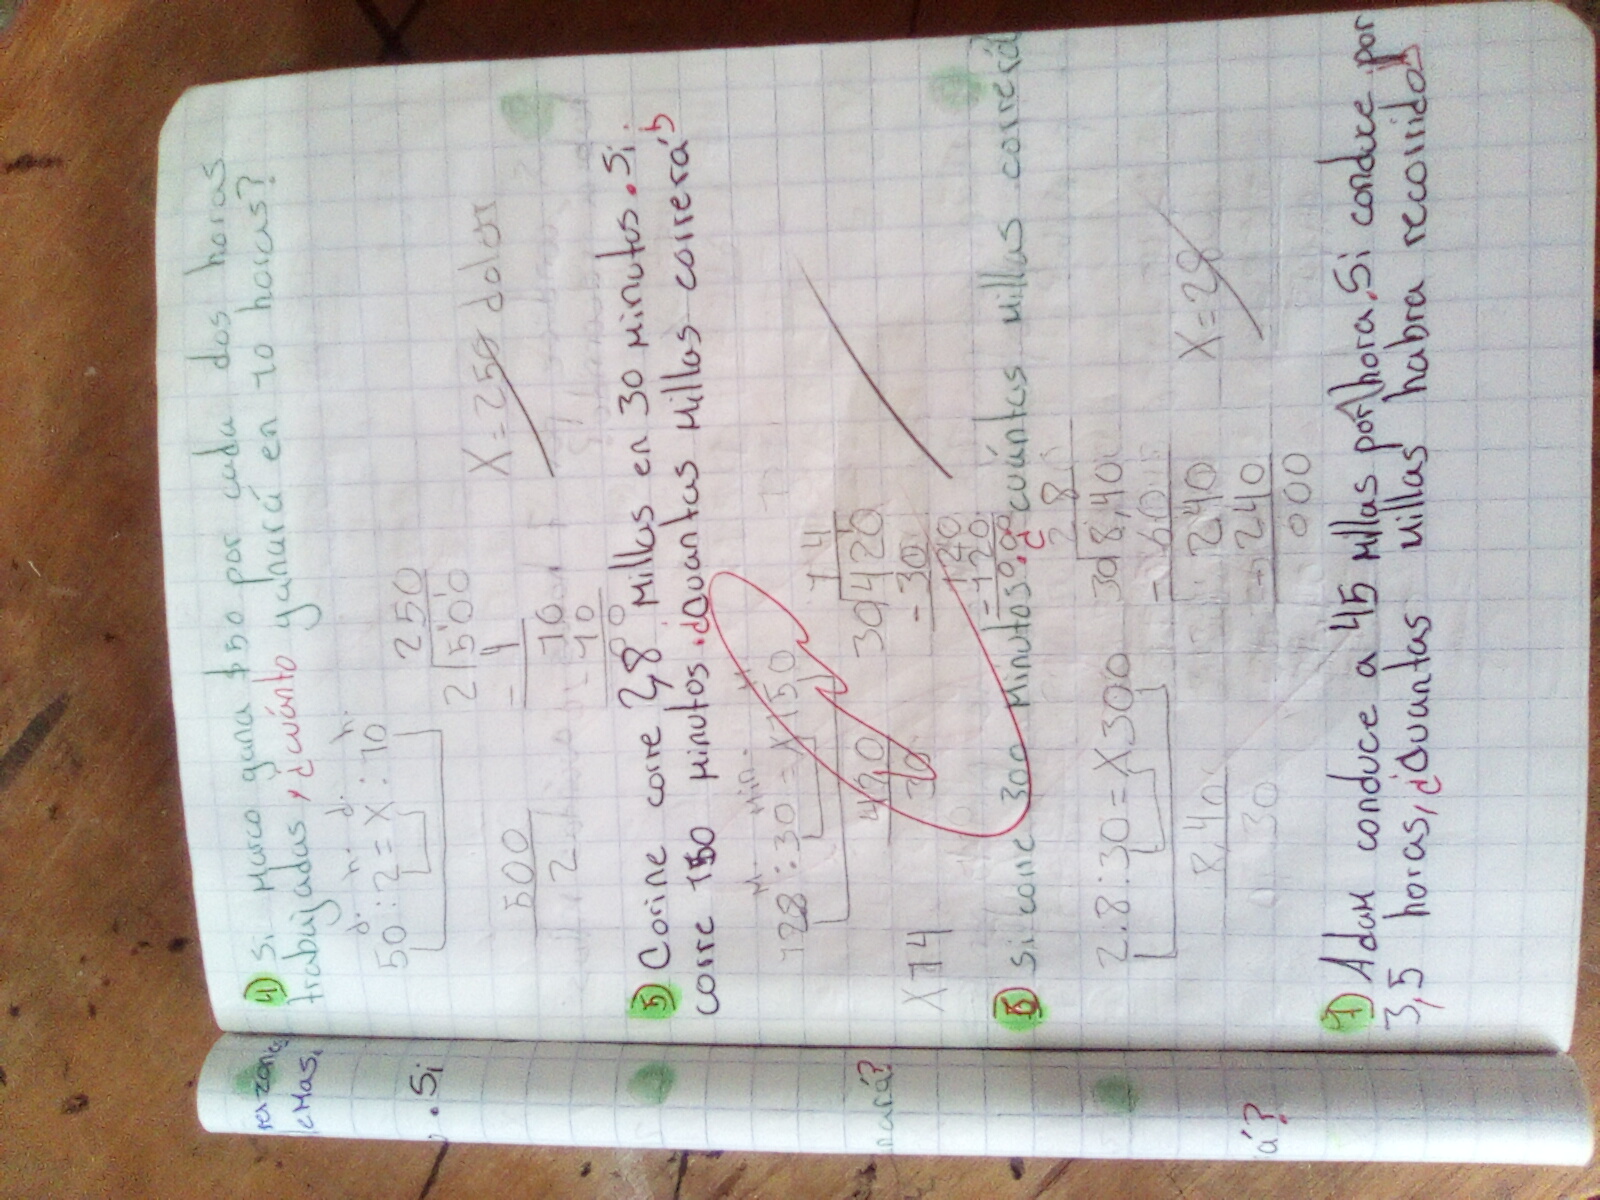 4) Si Marco gana $50 por cada dos horas
trabajadas, ¿cuánto ganará en 10 horas?
d. h. d. h.
50:2=X:10
250
2 500
500
2
X=250 dolar
5) Corine corre 2,8 Millas en 30 Minutos. Si
corre 150 Minutos. ¿cuantas Millas correrá?
M. Min.
:30=X150
14
30 420
-30
120
-120
000
420
30
X 14
6) si corre 300 Minutos. ¿cuántas Millas correrá
2.8:30=X300
28
30 8,40
-60
240
-240
000
8,40
30
X=28
7) Adam conduce a 45 Millas por hora. Si conduce por
3,5 horas, ¿cuantas Millas habra recorrido?
lemas.
. Si
nará?
á?